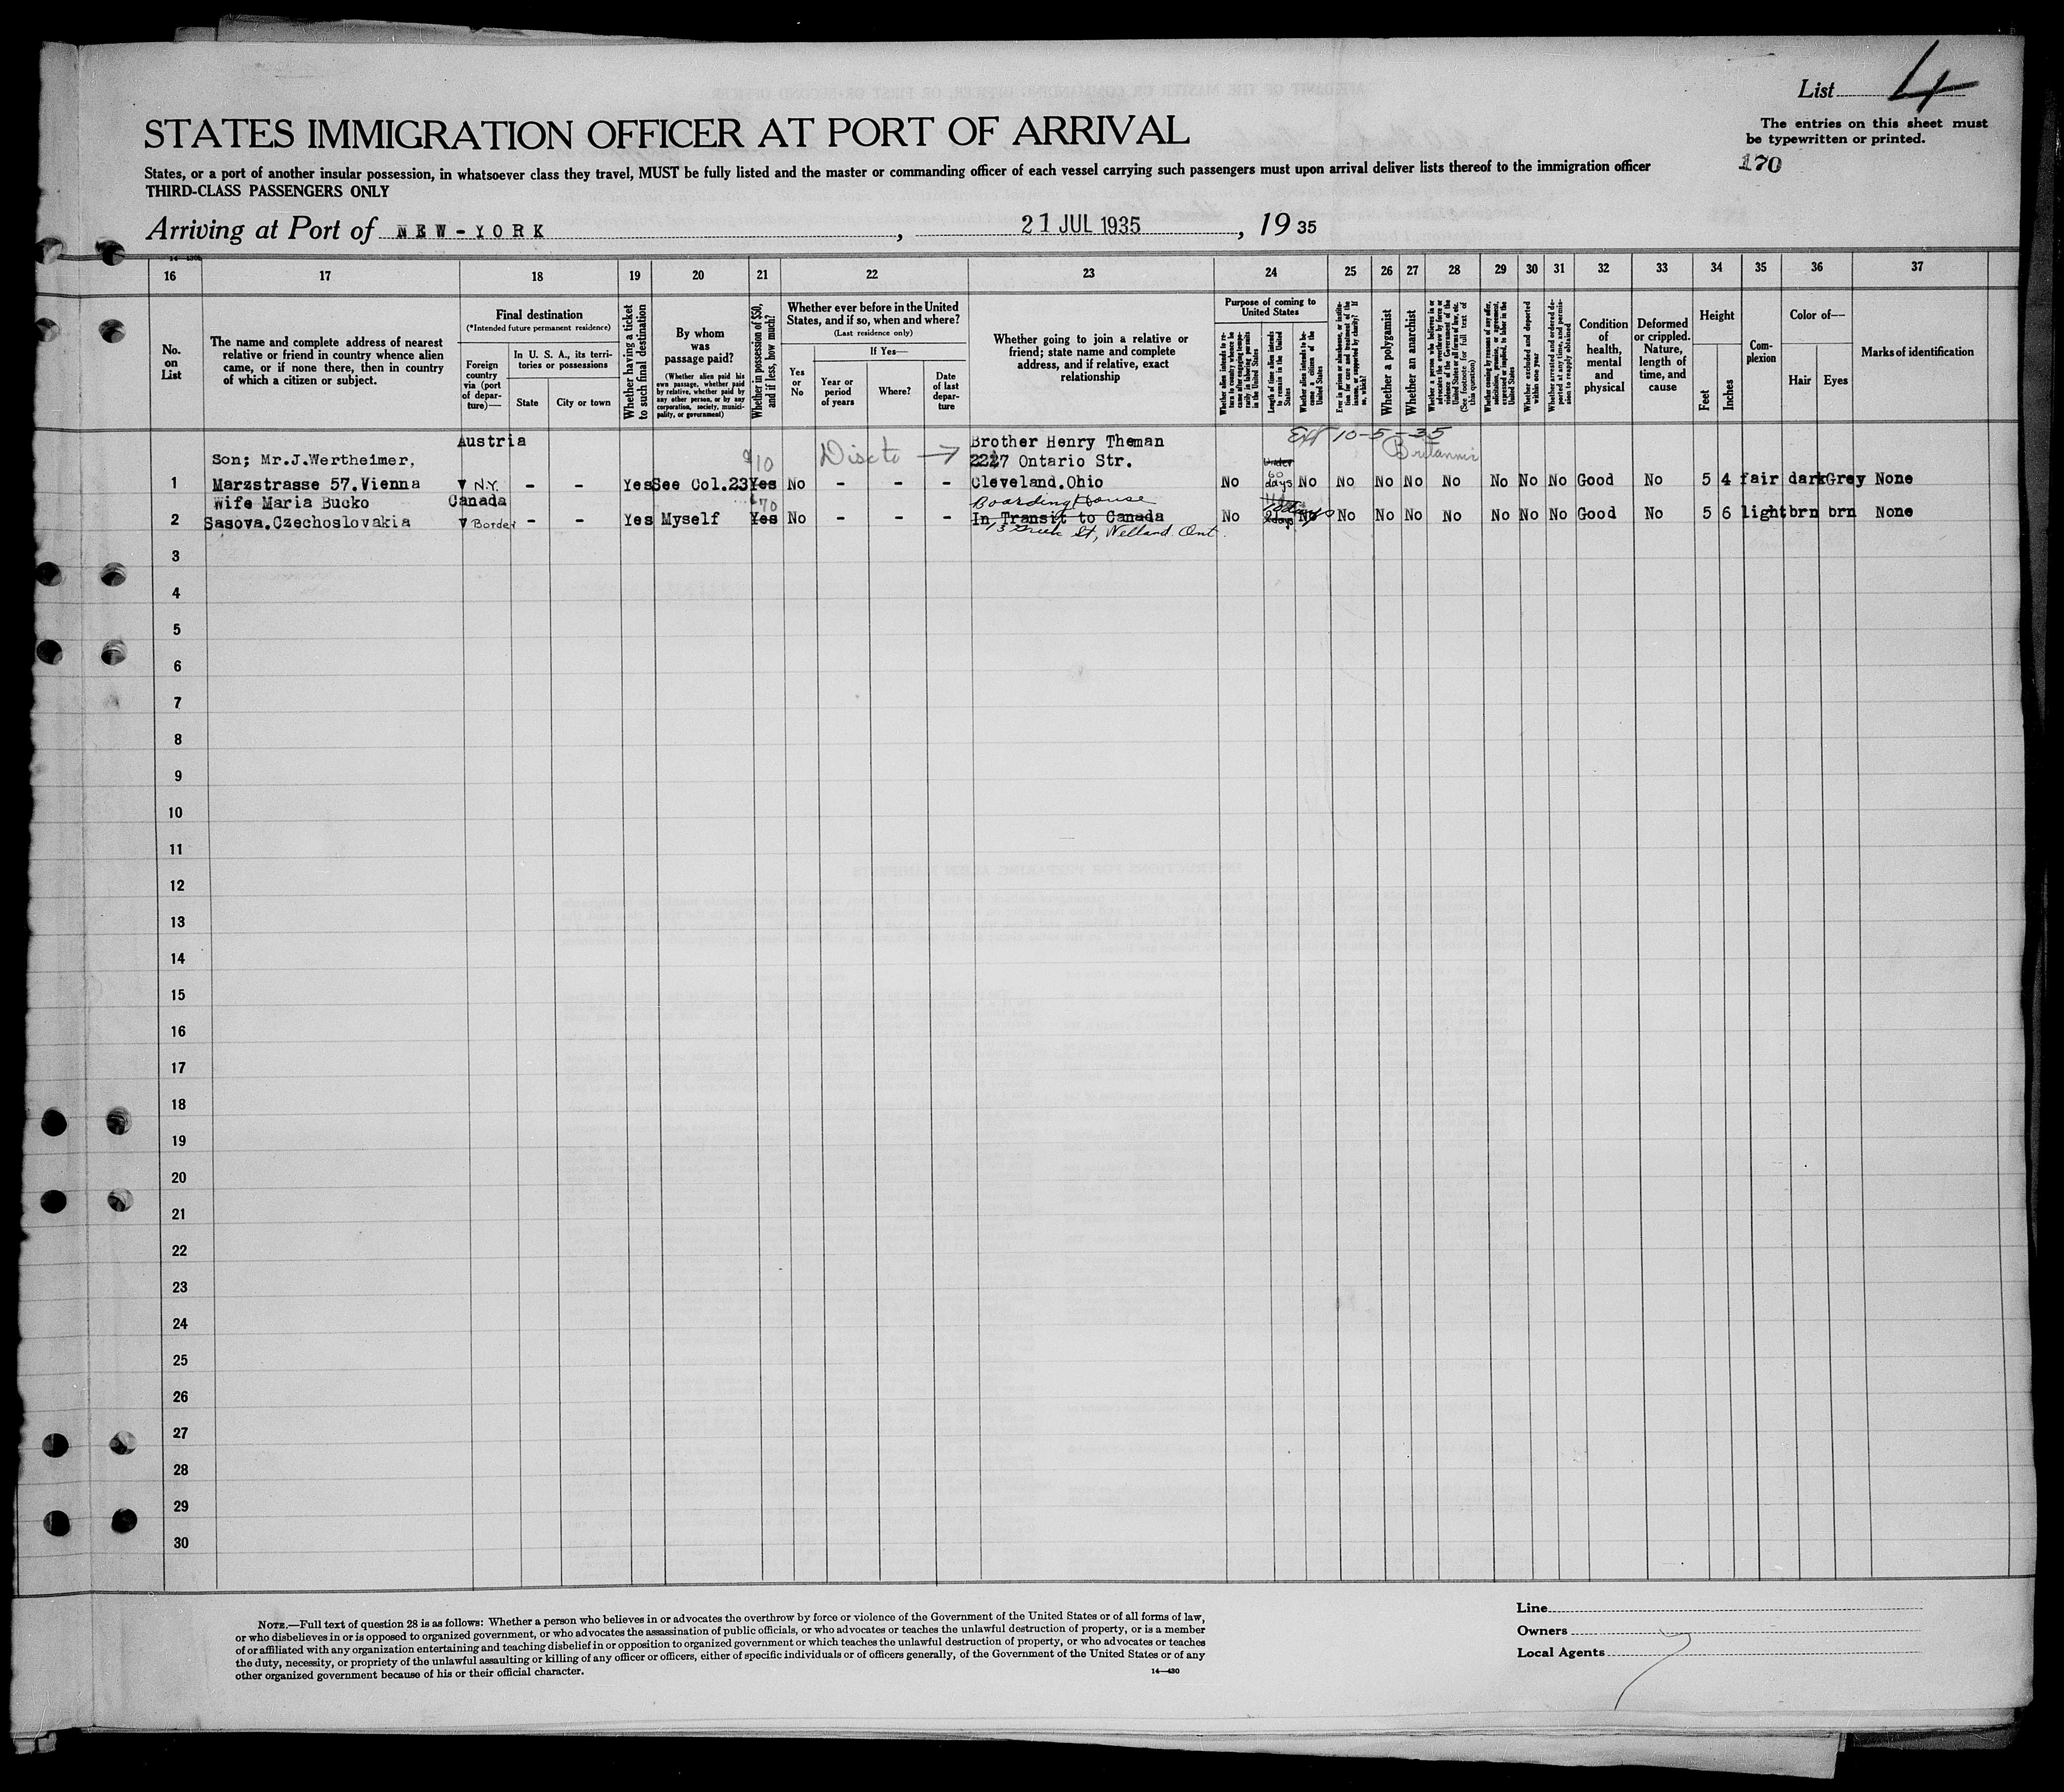 List 4
STATES IMMIGRATION OFFICER AT PORT OF ARRIVAL
The entries on this sheet must
be typewritten or printed.
170
States, or a port of another insular possession, in whatsoever class they travel, MUST be fully listed and the master or commanding officer of each vessel carrying such passengers must upon arrival deliver lists thereof to the immigration officer
THIRD-CLASS PASSENGERS ONLY
Arriving at Port of NEW-YORK, 21 JUL 1935, 19 35
16 17 18 19 20 21 22 23 24 25 26 27 28 29 30 31 32 33 34 35 36 37
No. on List
The name and complete address of nearest
relative or friend in country whence alien
came, or if none there, then in country
of which a citizen or subject.
Final destination
(*Intended future permanent residence)
Foreign country via (port of departure)—
In U. S. A., its territories or possessions
State
City or town
Whether having a ticket to such final destination
By whom was passage paid?
(Whether alien paid his own passage, whether paid by relative, whether paid by any other person, or by any corporation, society, municipality, or government)
Whether in possession of $50, and if less, how much?
Whether ever before in the United States, and if so, when and where?
(Last residence only)
Yes or No
If Yes—
Year or period of years
Where?
Date of last departure
Whether going to join a relative or
friend; state name and complete
address, and if relative, exact
relationship
Purpose of coming to United States
Whether alien intends to return to country whence he came after engaging temporarily in laboring pursuits in the United States
Length of time alien intends to remain in the United States
Whether alien intends to become a citizen of the United States
Ever in prison or almshouse, or institution for care and treatment of the insane, or supported by charity? If so, which?
Whether a polygamist
Whether an anarchist
Whether a person who believes in or advocates the overthrow by force or violence of the Government of the United States or all forms of law, etc. (See footnote for full text of this question)
Whether coming by reason of any offer, solicitation, promise, or agreement, expressed or implied, to labor in the United States
Whether excluded and deported within one year
Whether arrested and ordered deported at any time, and permission to reapply obtained
Condition of health, mental and physical
Deformed or crippled. Nature, length of time, and cause
Height
Feet
Inches
Complexion
Color of—
Hair
Eyes
Marks of identification
Austria Brother Henry Theman Ext 10-5-35
Son; Mr.J.Wertheimer, $10 Disc to → 2227 Ontario Str. Britannic
1 Marzstrasse 57.Vienna v N.Y. - - Yes See Col.23 Yes No - - - Cleveland.Ohio No 60 days No No No No No No No No Good No 5 4 fair dark Grey None
Wife Maria Bucko Canada 70 Boarding House
2 Sasova.Czechoslovakia v Border - - Yes Myself Yes No - - - In Transit to Canada No No No No No No No No No Good No 5 6 light brn brn None
St, Welland Ont.
3
4
5
6
7
8
9
10
11
12
13
14
15
16
17
18
19
20
21
22
23
24
25
26
27
28
29
30
NOTE.—Full text of question 28 is as follows: Whether a person who believes in or advocates the overthrow by force or violence of the Government of the United States or of all forms of law,
or who disbelieves in or is opposed to organized government, or who advocates the assassination of public officials, or who advocates or teaches the unlawful destruction of property, or is a member
of or affiliated with any organization entertaining and teaching disbelief in or opposition to organized government or which teaches the unlawful destruction of property, or who advocates or teaches
the duty, necessity, or propriety of the unlawful assaulting or killing of any officer or officers, either of specific individuals or of officers generally, of the Government of the United States or of any
other organized government because of his or their official character.
14—430
Line
Owners
Local Agents